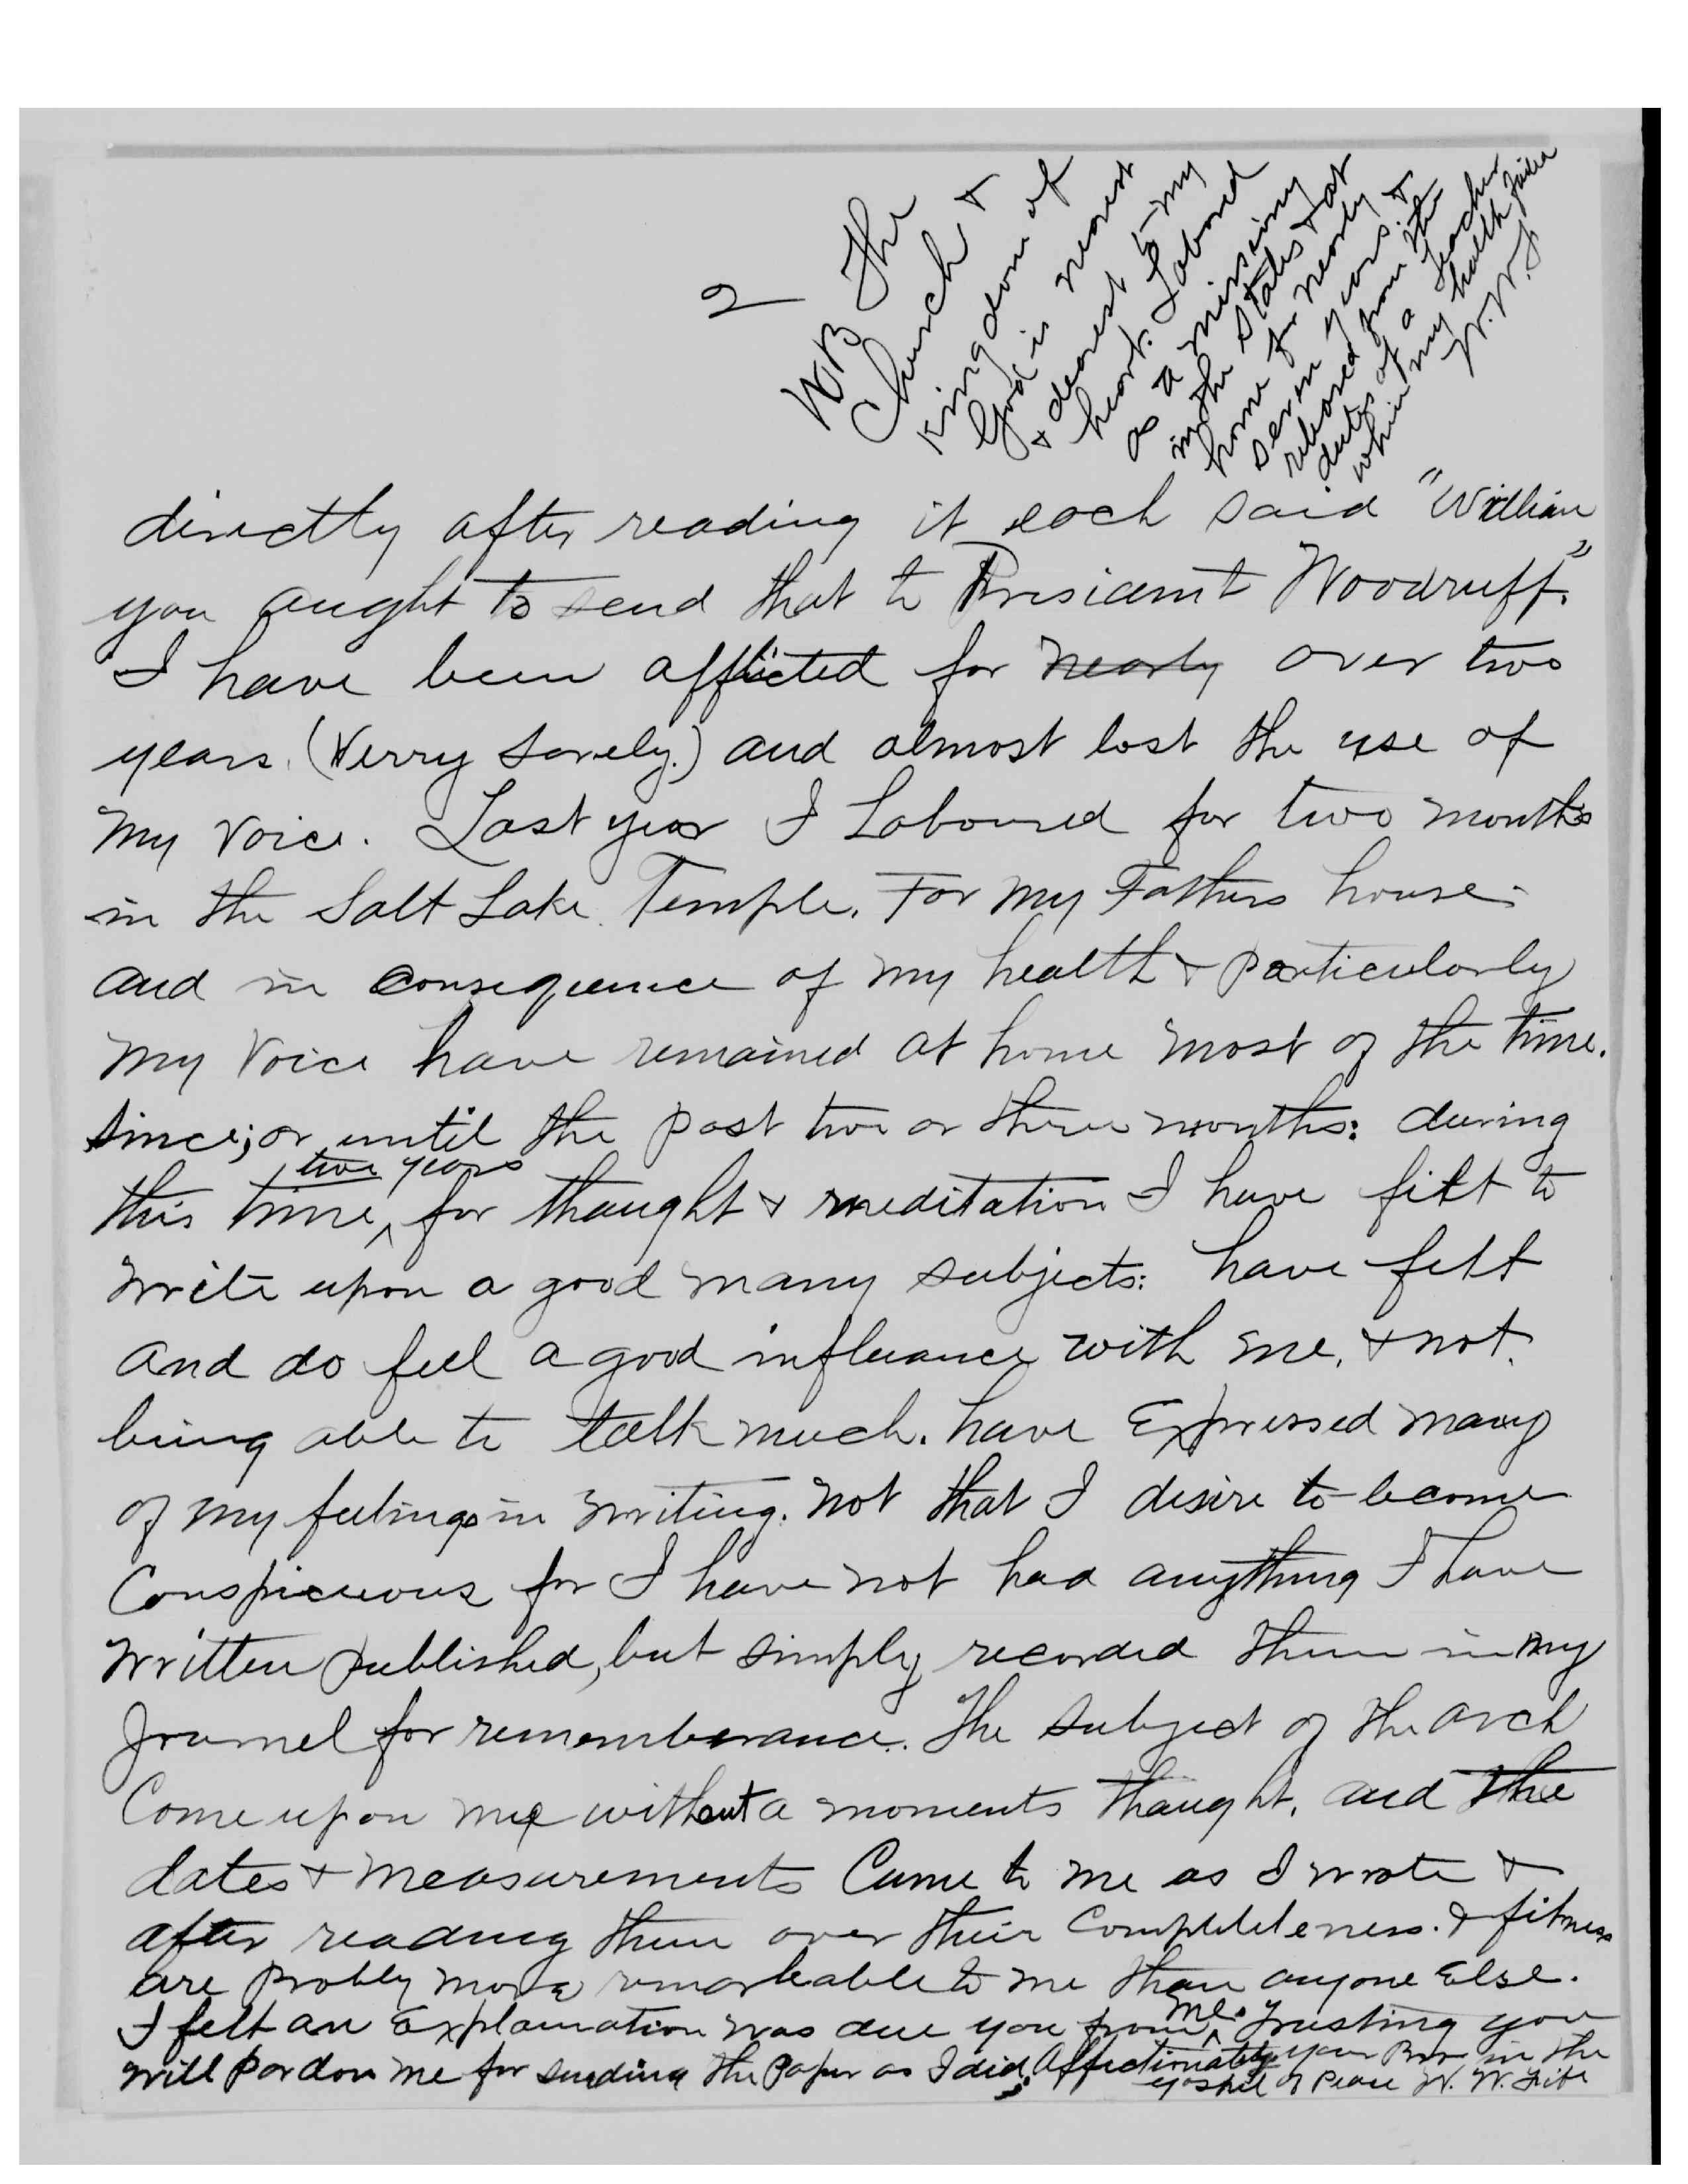 2
NB The
Church &
Kingdom of
God is nearest
& dearest to my
heart. Labored
as a missinary
in the States & at
home for nearly
seven years. &
released from the
duties of a teacher
when my health
W. W. F.
directly after reading it each said "William
you aught to send that to Presidant Woodruff."
I have been afflicted for nearly over two
years. (Verry Sorely.) and almost lost the use of
my voice. Last year I Laboured for two months
in the Salt Lake Temple. For my Fathers house
and in consequence of my health & particularly
my voice have remained at home most of the time.
since; or until the past two or three months: during
this time, two years for thaught & meditation I have felt to
write upon a good many subjects: have felt
and do feel a good influance with me, & not
being able to talk much. have Expressed many
of my feelings in writing. Not that I desire to become
Conspicuous for I have not had anything I have
written published, but simply recorded them in my
Journel for rememberance. The subject of the arch
Come upon me without a moments thaught, and the
dates & measurements Came to me as I wrote &
after reading them over their Completeleness. & fitness
are probly more remarkable to me than anyone Else.
I felt an Explaination was due you from me. Trusting you
will pardon me for sending the Paper as I did; Affectionately your Bro in the
gospel of Peace W. W. Fife